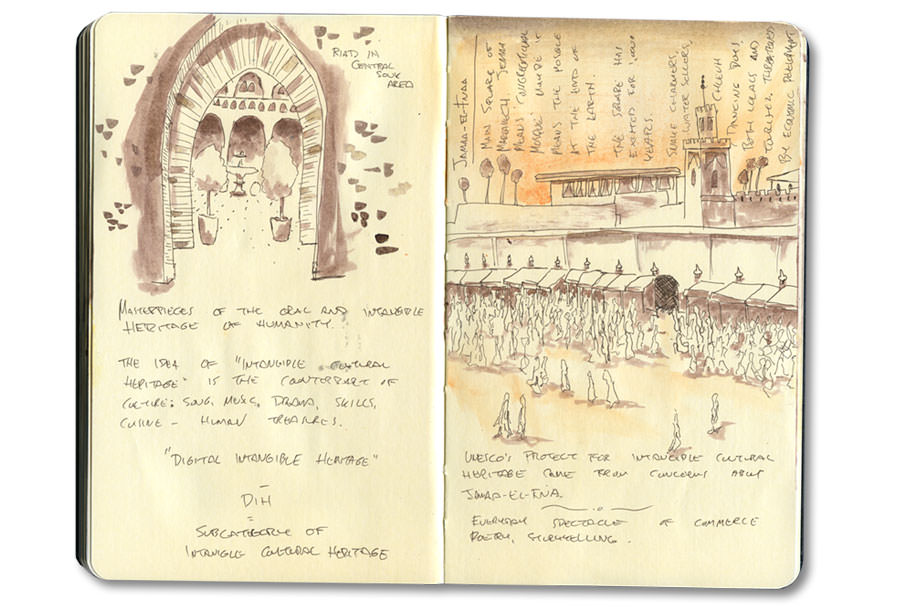 RIAD IN
CENTRAL
SOUK
AREA
MASTERPIECES OF THE ORAL AND INTANGIBLE
HERITAGE OF HUMANITY.
THE IDEA OF "INTANGIBLE CULTURAL
HERITAGE" IS THE COUNTERPART OF
CULTURE: SONG, MUSIC, DRAMA, SKILLS,
CUISINE – HUMAN TREASURES.
"DIGITAL INTANGIBLE HERITAGE"
–
DIH
=
SUBCATEGORY OF
INTANGIBLE CULTURAL HERITAGE
JAMAA-EL-FNAA
MAIN SQUARE OF
MARRAKECH JEMAA
MEANS CONGREGATIONAL
MOSQUE MAYBE IT
MEANS THE MOSQUE
AT THE END OF
THE EARTH.
THE SQUARE HAS
EXISTED FOR 1,000
YEARS.
SNAKE CHARMERS,
WATER SELLERS,
CHLEUH
DANCING BOYS
BOTH LOCALS AND
TOURISTS. THREATENED
BY ECONOMIC DEVELOPMENT
UNESCO'S PROJECT FOR INTANGIBLE CULTURAL
HERITAGE CAME FROM CONCERNS ABOUT
JAMAA-EL-FNA.
EVERYDAY SPECTACLE OF COMMERCE
POETRY, STORYTELLING.